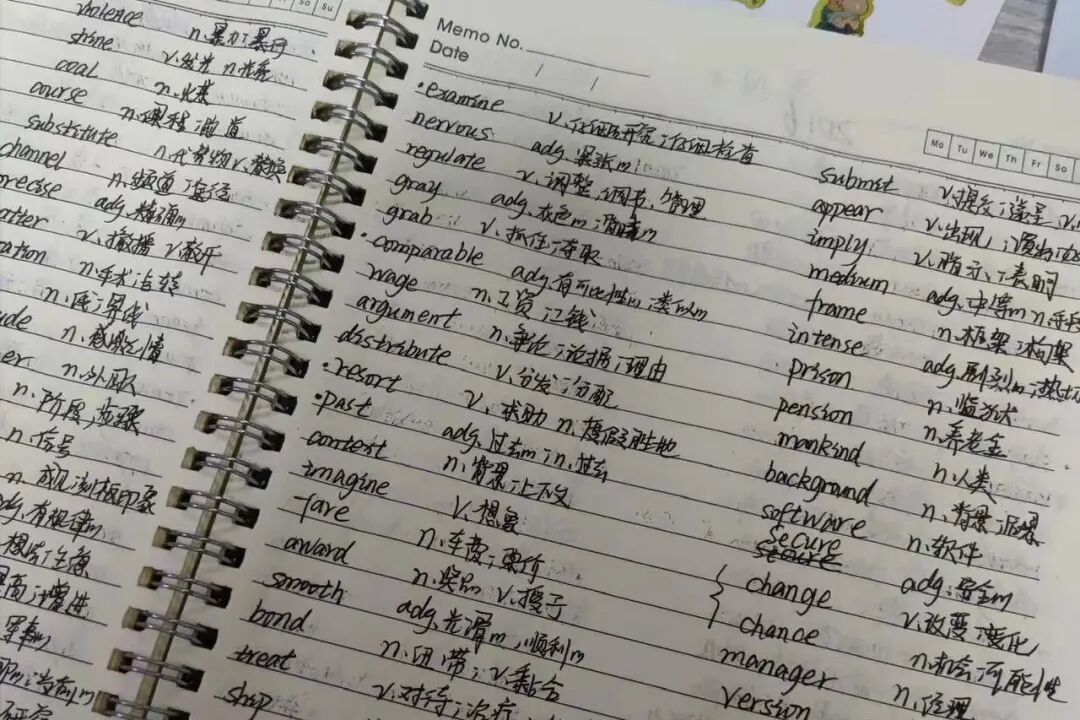 violence n.暴力;暴行
shine v.发光 n.光泽
coal n.煤
course n.课程;
substitute n.代替物 v.替换
channel n.频道;
adj.精确m
v.撒播 v.散开
n.手术;运转
n.
n.感激;情
n.外
n.阶段;步骤
n.信号
n.刻板印象
有规律m
Su
Memo No.
Date / /
Mo Tu We Th Fr Sa
·examine v.检查
nervous adj.紧张m;
regulate v.调整;调节、管理
gray adj.灰色m;
grab v.抓住;夺取
·comparable adj.有可比性m;类似m
wage n.工资;工钱
argument n.争论;论据;理由
distribute v.分发;分配
·resort v.求助 n.度假胜地
·past adj.过去m;n.过去
context n.背景;上下文
imagine v.想象
fare n.车费;票价
award n.奖品 v.授予
smooth adj.光滑m,顺利m
bond n.纽带;v.黏合
treat v.对待;治疗
ship
submit v.提交;
appear v.出现;
imply v.暗示、表明
medium adj.中等m n.
frame n.框架;构架
intense adj.剧烈m;
prison n.监狱
pension n.养老金
mankind n.人类
background n.背景;
software n.软件
secure adj.安全m
change v.改变;变化
chance n.机会;可能性
manager n.经理
version